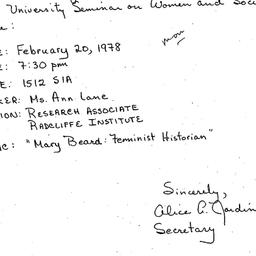 University Seminar on Women and Soc
e:
E: February 20, 1978
E: 7:30 pm
E: 1512 SIA
KER: Ms. Ann Lane
ION: RESEARCH ASSOCIATE
RADCLIFFE INSTITUTE
IC: "Mary Beard: Feminist Historian"
Sincerely,
Alice G. Jardin
Secretary